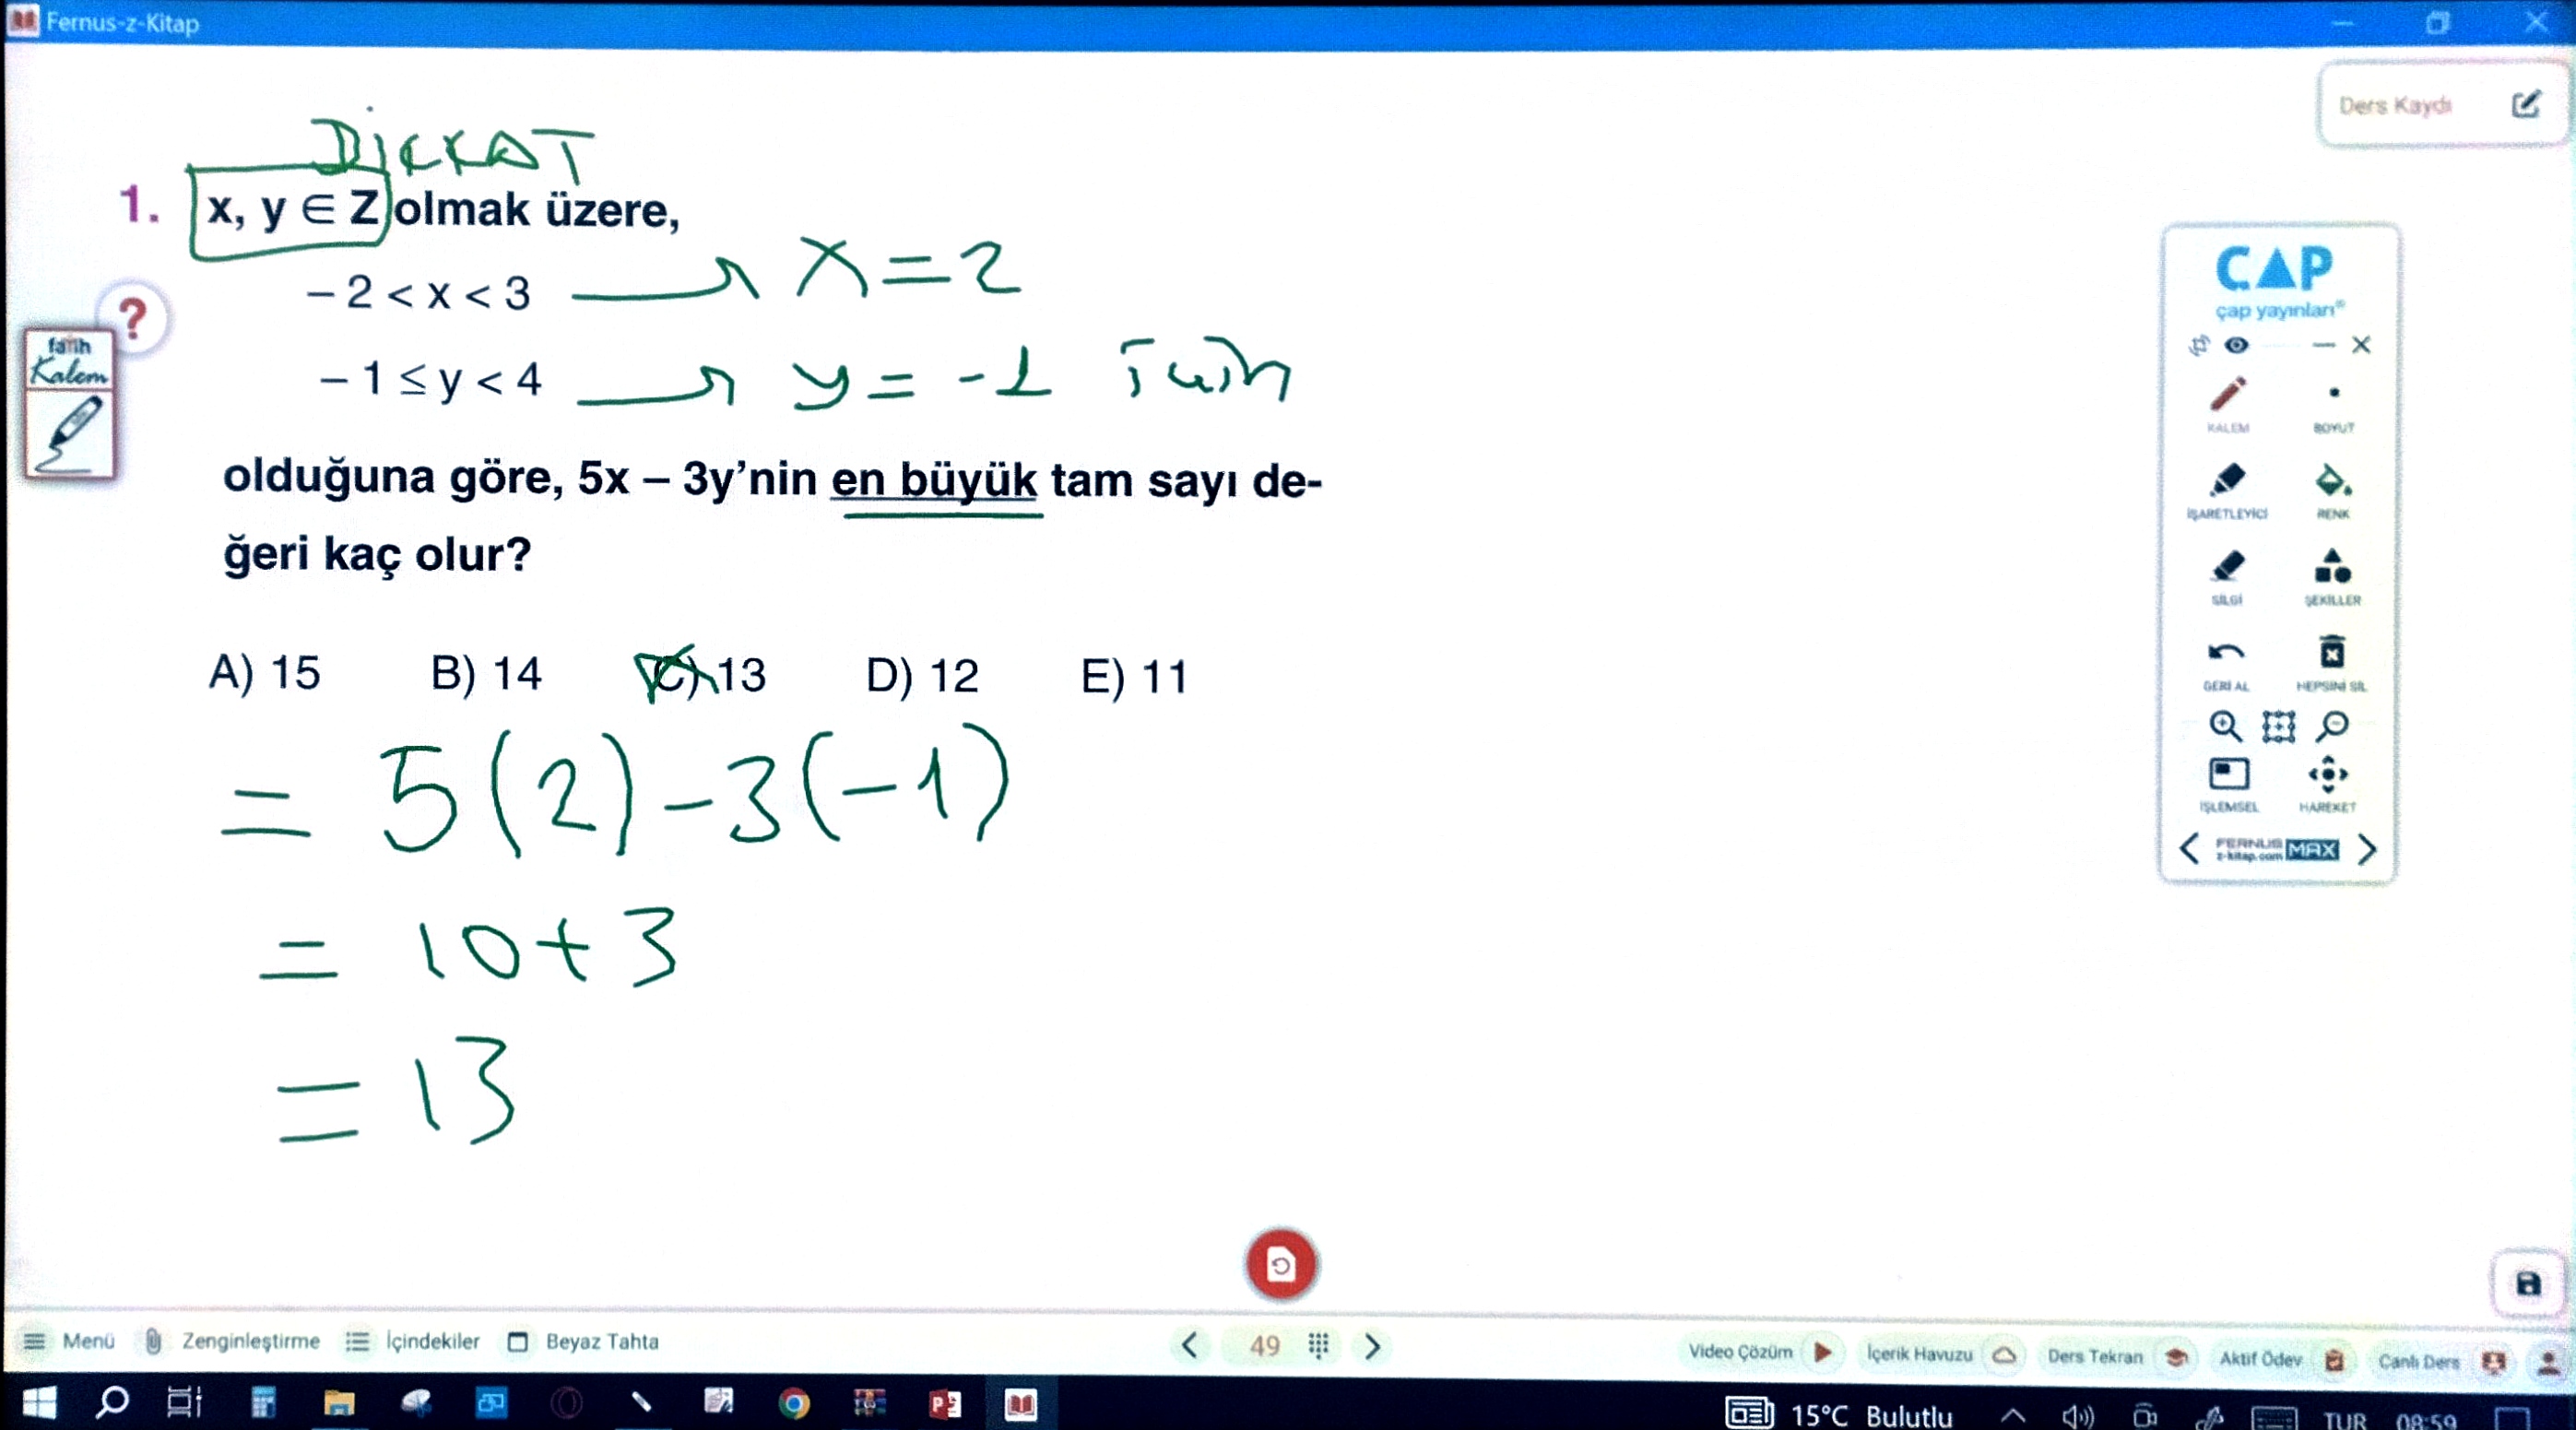 Fernus-z-Kitap
Ders Kaydı
DİKKAT
1. x, y ∈ Z olmak üzere,
– 2 < x < 3 x = 2
– 1 ≤ y < 4 y = -1 için
olduğuna göre, 5x – 3y'nin en büyük tam sayı de-
ğeri kaç olur?
A) 15 B) 14 C) 13 D) 12 E) 11
= 5(2) - 3(-1)
= 10 + 3
= 13
?
fatih
Kalem
ÇAP
çap yayınları®
KALEM BOYUT
İŞARETLEYİCİ RENK
SİLGİ ŞEKİLLER
GERİ AL HEPSİNİ SİL
İŞLEMSEL HAREKET
FERNUS
z-kitap.com MAX
Menü Zenginleştirme İçindekiler Beyaz Tahta 49 Video Çözüm İçerik Havuzu Ders Tekran Aktif Ödev Canlı Ders
15°C Bulutlu TUR 08:59